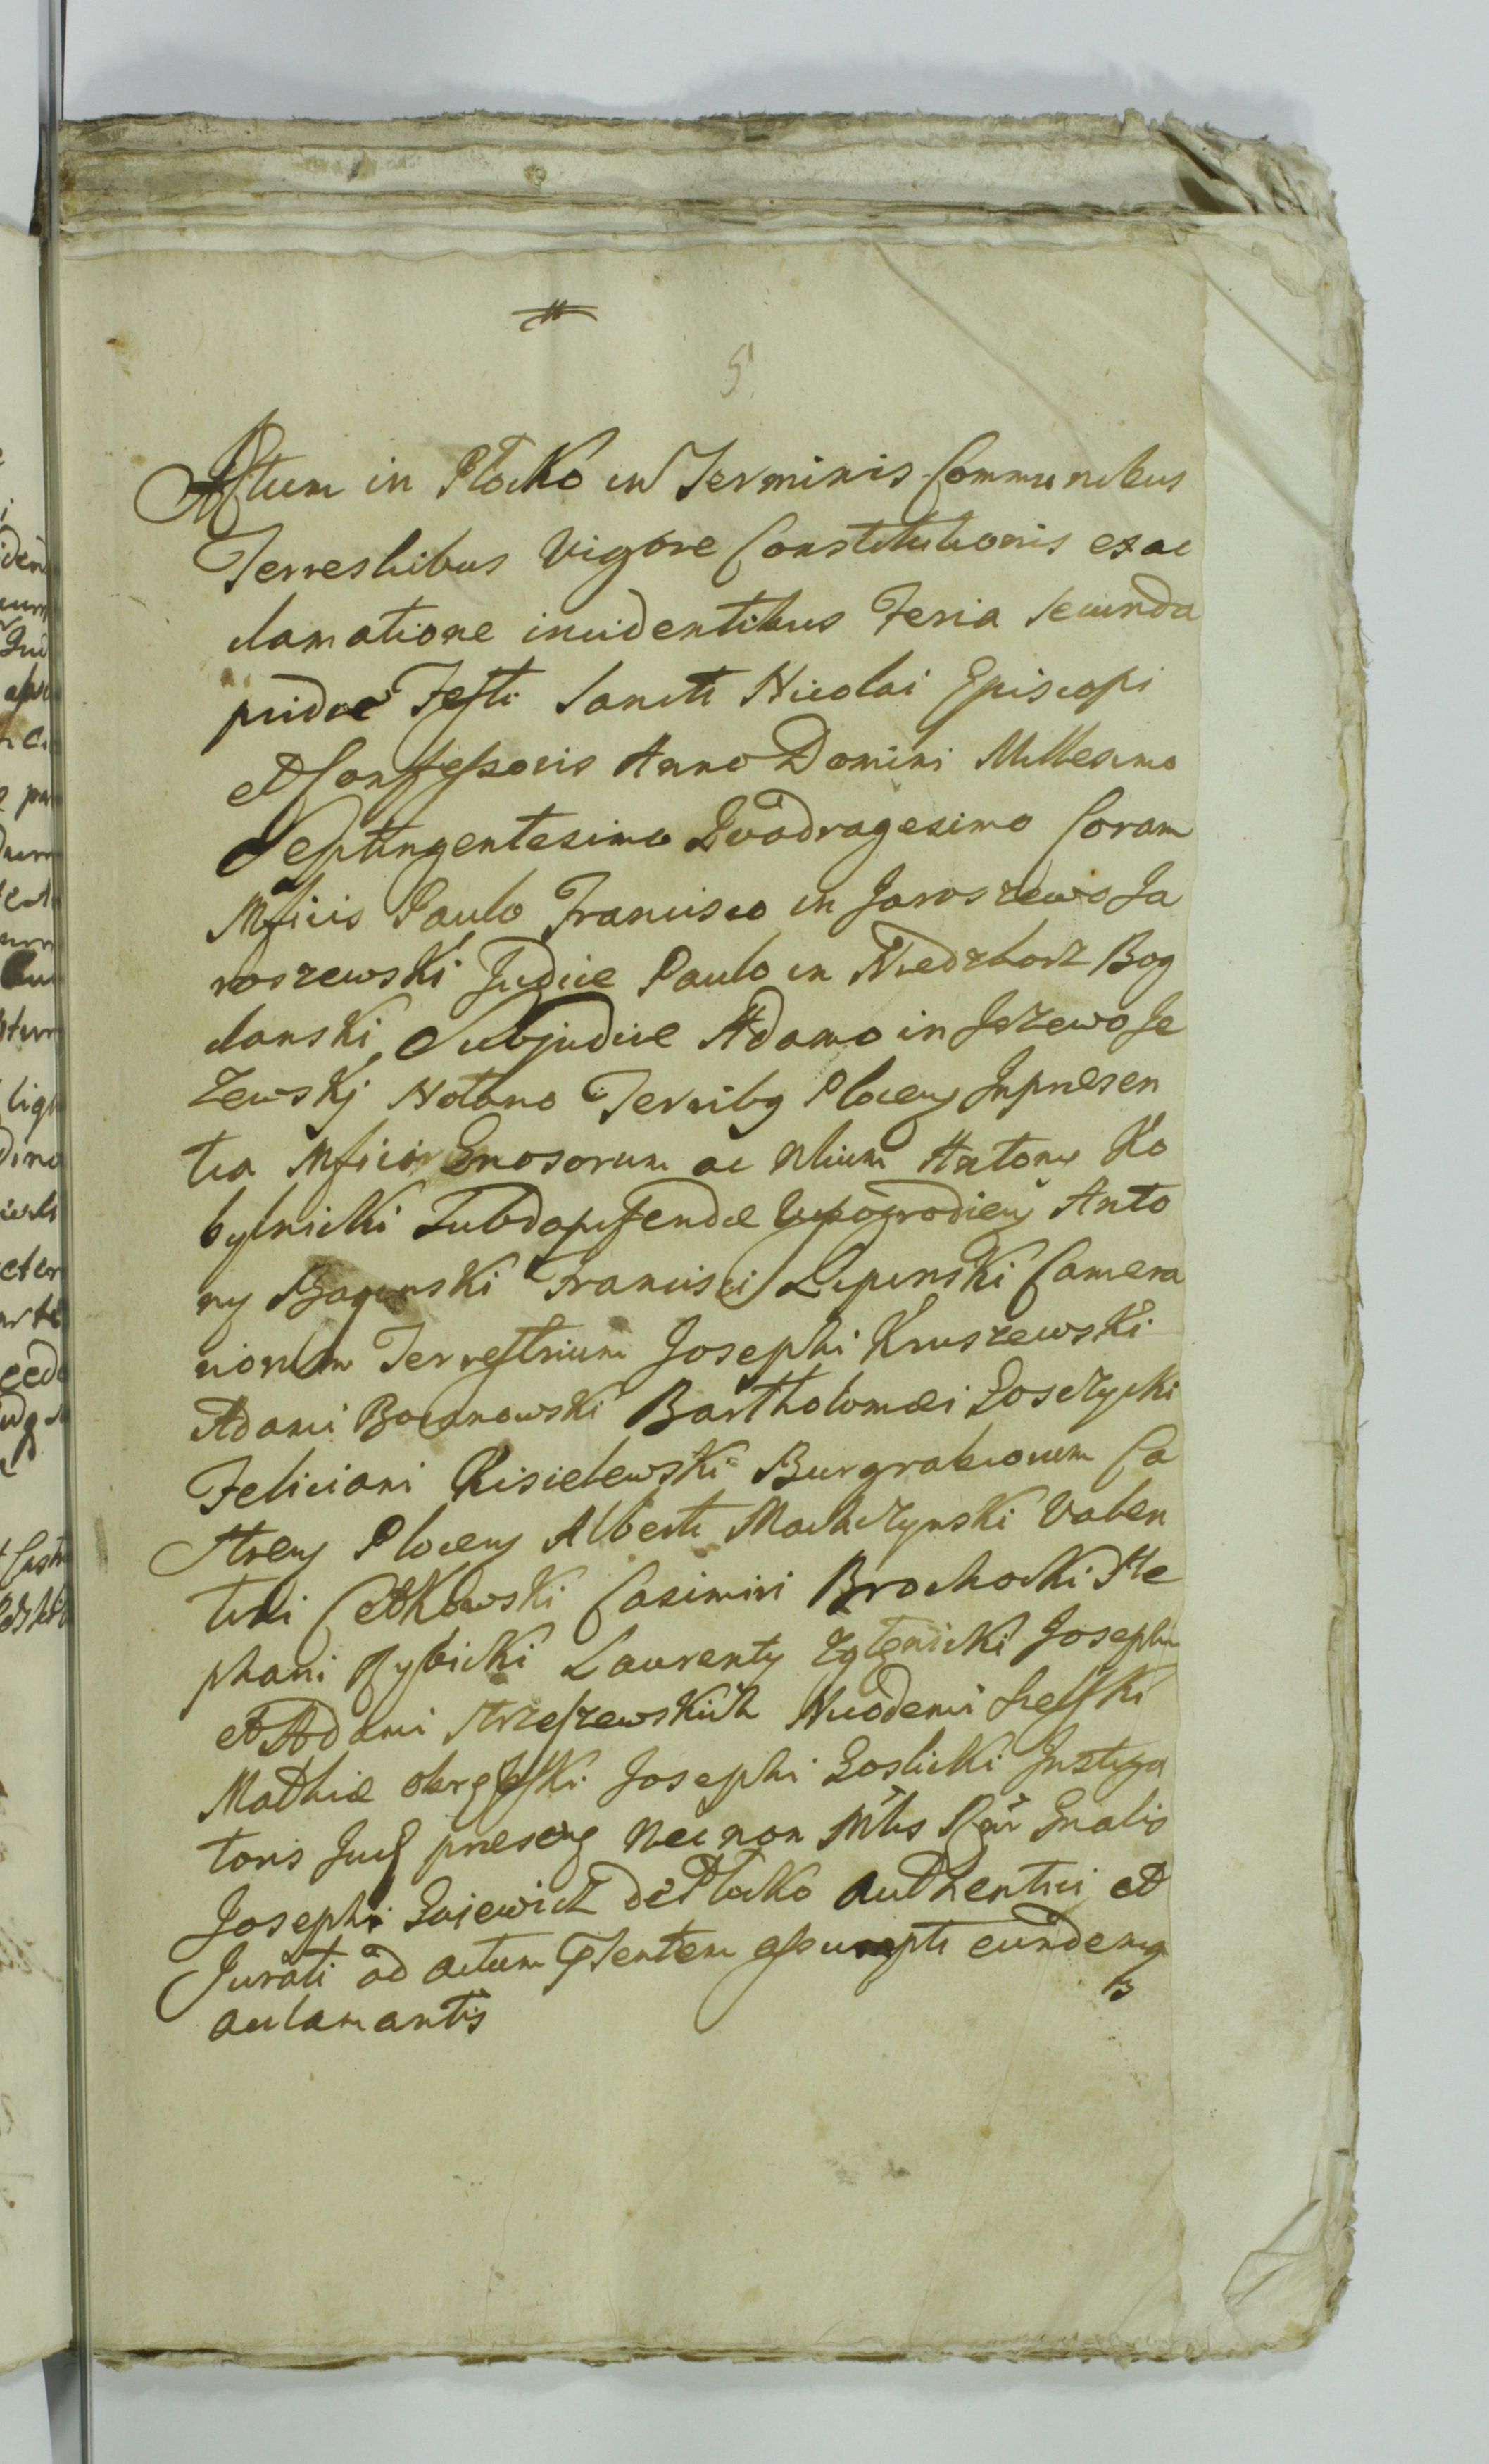 5
Actum in Płocko in Terminis Communibus
Terrestribus Vigore Constitutionis ex ac
clamatione incidentibus Feria Secunda
pridie Festi Sancti Nicolai Episcopi
et Confessoris Anno Domini Millesimo
Septingentesimo Quadragesimo Coram
Mficis Paulo Francisco in Jaroszewo Ja
roszewski Judice Paulo in Niedzborz Bog
danski, Subjudice Adamo in Jeżewo Je
żewskj Notario Terribg Plocens Inpraesen
tia Mficor Gnosorum ac Nlium Antony Ko
bylnicki Subdapifendae Wyszogrodiens Anto
ny Francisci Lipinski Camera
riorum Terrestrium Josephi Kruszewski
Adami Bocanowski Bartholomaei Goszczycki
Feliciani Kisielewski Burgrabiorum Ca
strens Plocens Alberti Machczynski Valen
tini Cetkowski Casimiri Brochocki Ste
phani Rybicki Laurenty Zglenicki Josephi
et Adami Strzeszewskich Nicodemi
Mathiae Josephi Goslicki Instiga
toris Jud praesens Necnon Mtis Gnalis
Josephi Gajewicz de Płocko Authentici et
Jurati ad actum pntem assumpti eundemq
acclamantis